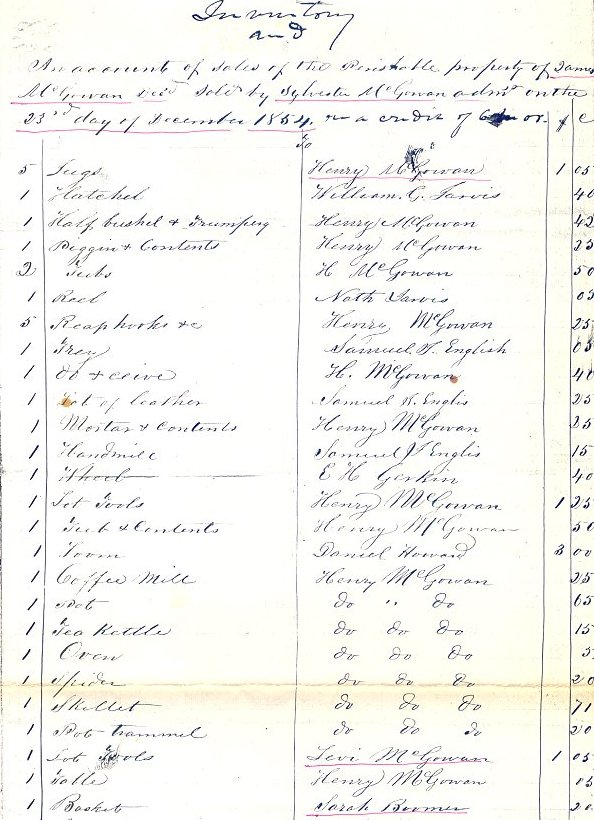 Inventory
and
An account of sales of the Perishable property of James
McGowan decd Sold by Sylvester McGowan admr on the
23rd day of December 1854, on a credit of or. $ C
To
5 Jugs Henry McGowan 1 05
1 Hatchel William G. Jarvis 40
1 Half bushel & Trumpery Henry McGowan 42
1 Piggin & Contents Henry McGowan 25
2 Tubs H McGowan 50
1 Reel Nath Jarvis 05
5 Reaphooks &c Henry McGowan 25
1 Trey Samuel English 05
1 do & ceive H. McGowan 40
1 Lot of leather Samuel Englis 25
1 Mortar & Contents Henry McGowan 25
1 Handmill Samuel Englis 15
1 Wheel E H Gerkin 40
1 Lot Tools Henry McGowan 1 25
1 Tub & Contents Henry McGowan 50
1 Loom Daniel Howard 3 00
1 Coffee Mill Henry McGowan 25
1 Pot do " do 65
1 Tea Kettle do do do 15
1 Oven do do do 5
1 Spider do do do 20
1 Skillet do do do 71
1 Pot trammel do do do 20
1 Lot Tools Levi McGowan 1 05
1 Table Henry McGowan 05
1 Basket Sarah Boomer 20